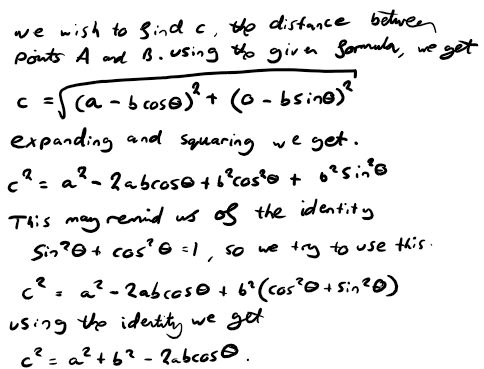 we wish to find c, the distance between
points A and B. using the given formula, we get
c = √((a - b cosθ)² + (0 - b sinθ)²)
expanding and squaring we get.
c² = a² - 2abcosθ + b²cos²θ + b²sin²θ
This may remind us of the identity
sin²θ + cos²θ = 1, so we try to use this.
c² = a² - 2abcosθ + b²(cos²θ + sin²θ)
using the identity we get
c² = a² + b² - 2abcosθ.